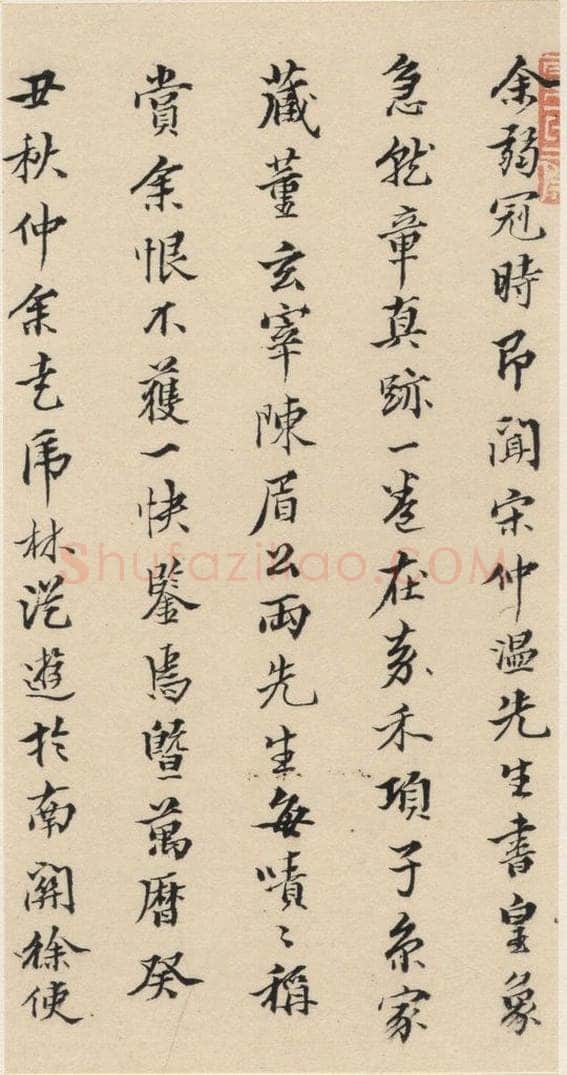 余弱冠時即聞宋仲温先生書皇象
急就章真跡一卷在嘉禾項子京家
藏董玄宰陳眉公両先生每嘖〻稱
賞余恨不獲一快鑒焉曁萬曆癸
丑秋仲余走馬材従遊於南關徐使
Shufaziliao.COM